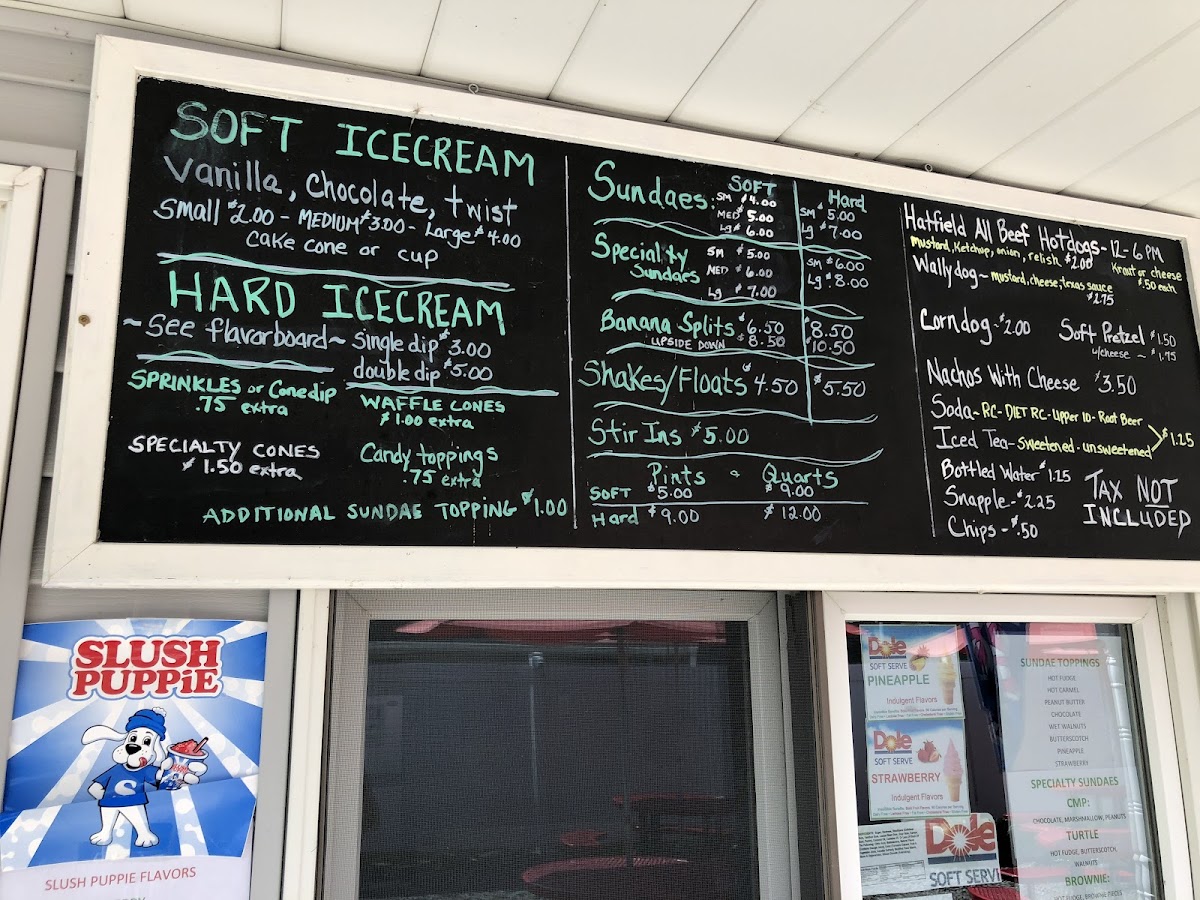 SOFT ICECREAM
Vanilla, Chocolate, twist
Small $2.00 - MEDIUM $3.00 - Large $4.00
cake cone or cup
HARD ICECREAM
~ See flavorboard ~ Single dip $3.00
double dip $5.00
SPRINKLES or Conedip
.75 extra
WAFFLE CONES
$1.00 extra
SPECIALTY CONES
$1.50 extra
Candy toppings
.75 extra
ADDITIONAL SUNDAE TOPPING $1.00
Sundaes:
SOFT
SM $4.00
MED $5.00
Lg $6.00
Hard
SM $5.00
Lg $7.00
Specialty
Sundaes
SM $5.00
MED $6.00
Lg $7.00
SM $6.00
Lg $8.00
Banana Splits $6.50 $8.50
UPSIDE DOWN $8.50 $10.50
Shakes/Floats $4.50 $5.50
Stir Ins $5.00
Pints - Quarts
SOFT $5.00 $9.00
Hard $9.00 $12.00
Hatfield All Beef Hotdogs - 12-6 PM
mustard, Ketchup, onion, relish $2.00
Kraut or cheese
$.50 each
Wallydog ~ mustard, cheese, texas sauce
$2.75
Corndog - $2.00
Soft Pretzel $1.50
w/cheese ~ $1.75
Nachos With Cheese $3.50
Soda ~ RC - DIET RC - Upper 10 - Root Beer
Iced Tea - Sweetened - unsweetened
$1.25
Bottled Water $1.25
Snapple - $2.25
Chips - $.50
TAX NOT
INCLUDED
SLUSH
PUPPiE
S
SLUSH PUPPIE FLAVORS
Dole
SOFT SERVE
PINEAPPLE
Indulgent Flavors
Dole
SOFT SERVE
STRAWBERRY
Indulgent Flavors
Dole
SOFT SERV
SUNDAE TOPPINGS
HOT FUDGE
HOT CARMEL
PEANUT BUTTER
CHOCOLATE
WET WALNUTS
BUTTERSCOTCH
PINEAPPLE
STRAWBERRY
SPECIALTY SUNDAES
CMP:
CHOCOLATE, MARSHMALLOW, PEANUTS
TURTLE
HOT FUDGE, BUTTERSCOTCH,
WALNUTS
BROWNIE:
HOT FUDGE, BROWNIE PIECES